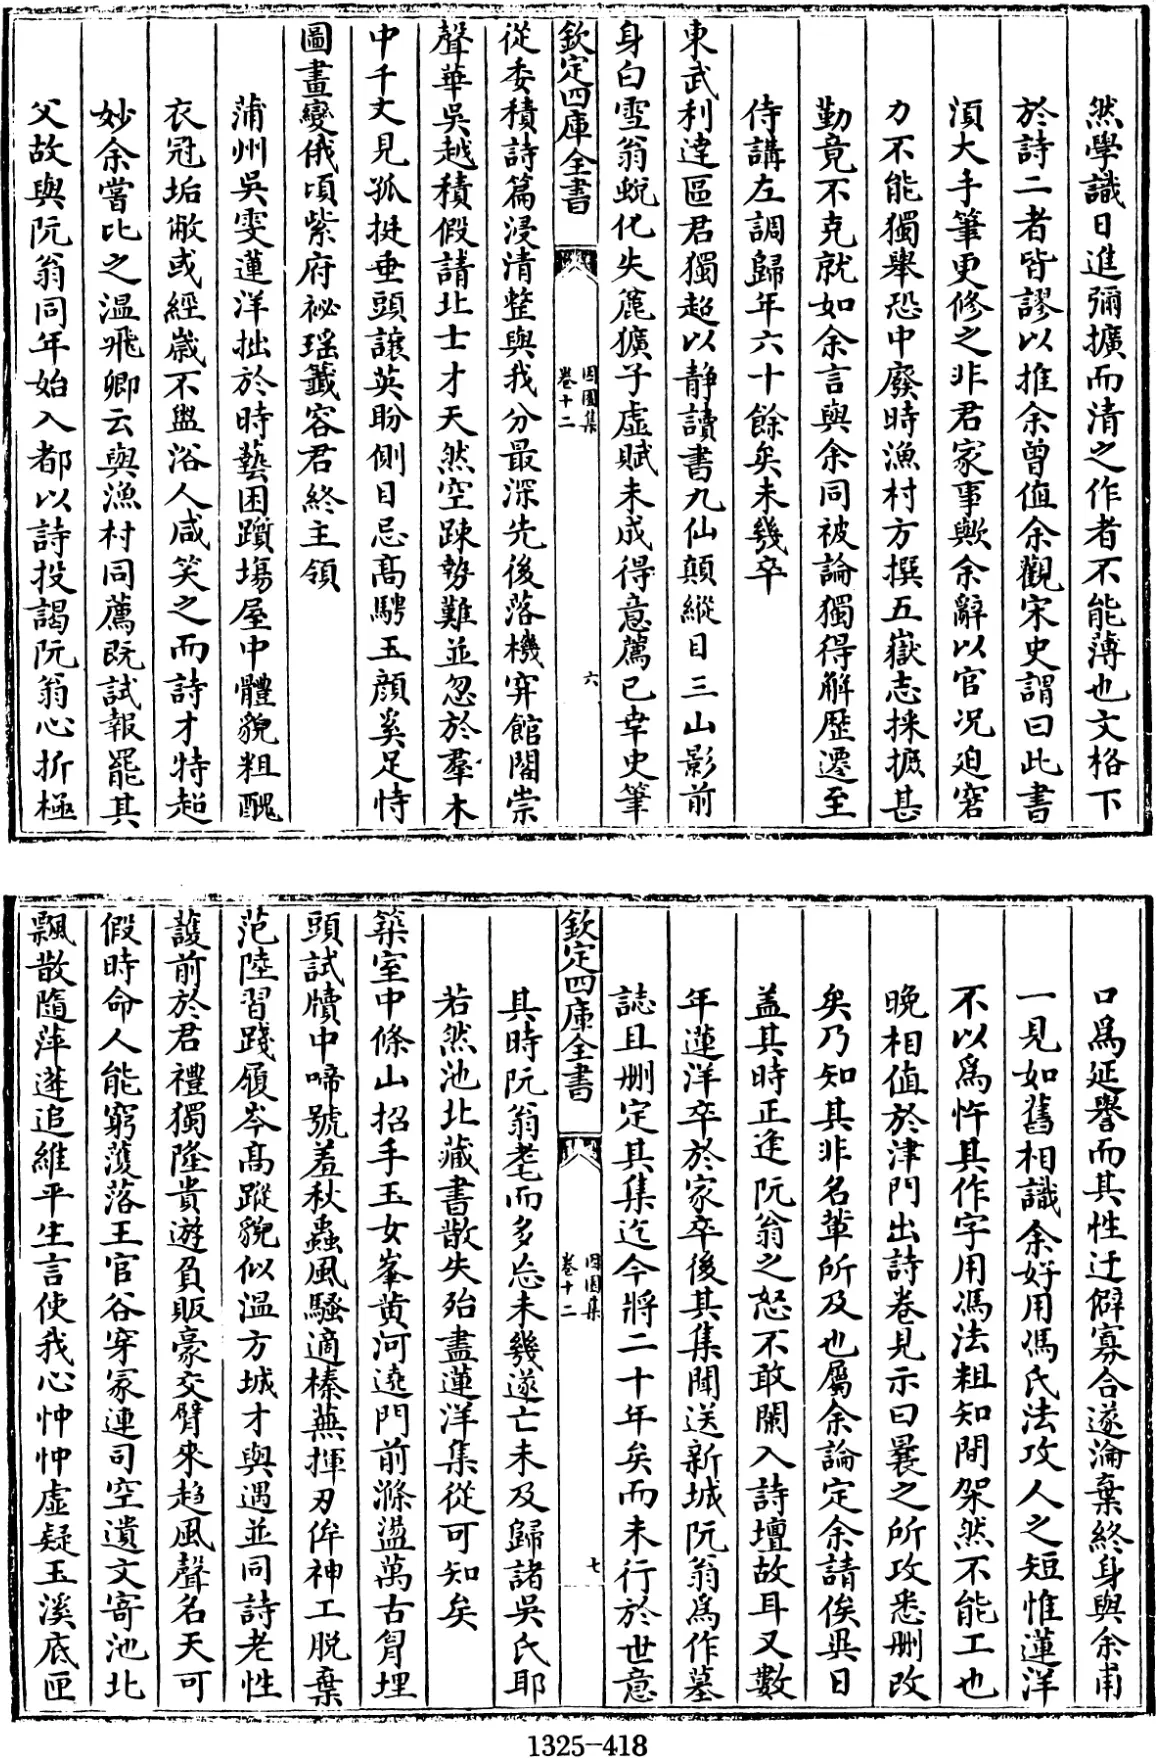 然學識日進彌擴而清之作者不能薄也文格下
於詩二者皆謬以推余曾值余觀宋史謂曰此書
須大手筆更修之非君家事歟余辭以官況迫窘
力不能獨舉恐中廢時漁村方撰五嶽志採摭甚
勤竟不克就如余言與余同被論獨得解歷遷至
侍講左調歸年六十餘矣未幾卒
東武利達區君獨超以靜讀書九仙顛縱目三山影前
身白雪翁蛻化失麁獷子虛賦未成得意薦已幸史筆
欽定四庫全書
因園集
卷十二
六
從委積詩篇浸清整與我分最深先後落機穽館閣崇
聲華吳越積假請北士才天然空疎勢難並忽於羣木
中千丈見孤挺垂頭讓英盼側目忌高騁玉顔奚足恃
圖畫變俄頃紫府祕瑶籤容君終主領
蒲州吳雯蓮洋拙於時藝困躓場屋中體貌粗醜
衣冠垢敝或經歲不盥浴人咸笑之而詩才特超
妙余嘗比之温飛卿云與漁村同薦既試報罷其
父故與阮翁同年始入都以詩投謁阮翁心折極
口爲延譽而其性迂僻寡合遂淪棄終身與余甫
一見如舊相識余好用馮氏法攻人之短惟蓮洋
不以爲忤其作字用馮法粗知間架然不能工也
晚相值於津門出詩卷見示曰曩之所攻悉刪改
矣乃知其非名輩所及也屬余論定余請俟異日
盖其時正逢阮翁之怒不敢闌入詩壇故耳又數
年蓮洋卒於家卒後其集聞送新城阮翁爲作墓
誌且刪定其集迄今將二十年矣而未行於世意
欽定四庫全書
因園集
卷十二
七
其時阮翁耄而多忘未幾遂亡未及歸諸吳氏耶
若然池北藏書散失殆盡蓮洋集從可知矣
築室中條山招手玉女峯黄河遶門前滌盪萬古胷埋
頭試牘中啼號羞秋蟲風騷適榛蕪揮刃侔神工脱棄
范陸習踐履岑高蹤貌似温方城才與遇並同詩老性
護前於君禮獨隆貴遊負販豪交臂來趋風聲名天可
假時命人能窮濩落王官谷穿冢連司空遺文寄池北
飄散隨萍蓬追維平生言使我心忡忡虛疑玉溪底匣
1325-418